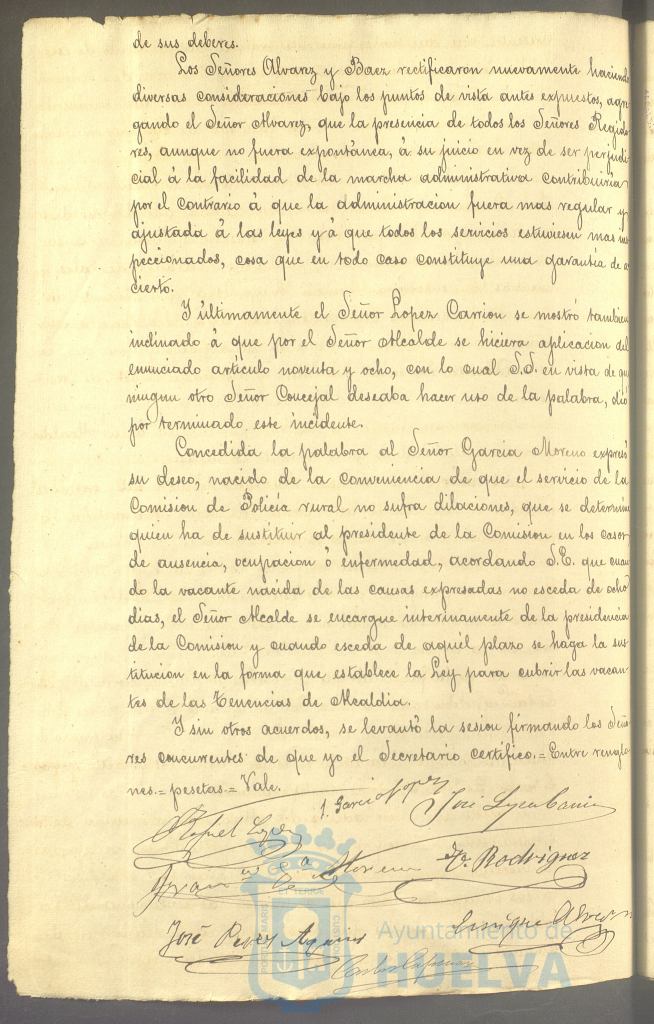 de sus deberes.
Los Señores Alvarez y Baez rectificaron nuevamente haciendo
diversas consideraciones bajo los puntos de vista antes expuestos, agre
gando el Señor Alvarez, que la presencia de todos los Señores Regido
res, aunque no fuera expontánea, á su juicio en vez de ser perjudi
cial á la facilidad de la marcha administrativa contribuiria
por el contrario á que la administracion fuera mas regular y
ajustada á las leyes y á que todos los servicios estuviesen mas ins
peccionados, cosa que en todo caso constituye una garantia de a
cierto.
Y últimamente el Señor Lopez Carrion se mostró tambien
inclinado á que por el Señor Alcalde se hiciera aplicacion del
enunciado artículo noventa y ocho, con lo cual S.S. en vista de que
ningun otro Señor Concejal deseaba hacer uso de la palabra, dió
por terminado este incidente.
Concedida la palabra al Señor Garcia Moreno expresó
su deseo, nacido de la conveniencia de que el servicio de la
Comision de Policía rural no sufra dilaciones, que se determine
quien ha de sustituir al presidente de la Comision en los casos
de ausencia, ocupacion ó enfermedad, acordando S.E. que cuan
do la vacante nacida de las causas expresadas no esceda de ocho
dias, el Señor Alcalde se encargue interinamente de la presidencia
de la Comision y cuando esceda de aquél plazo se haga la sus
titucion en la forma que establece la Ley para cubrir las vacan
tes de las Tenencias de Alcaldia.
Y sin otros acuerdos, se levantó la sesion firmando los Seño
res concurrentes de que yo el Secretario certifico.= Entre renglo
nes.= pesetas.= Vale.
Rafael Lopez J. Garcia Lopez José Lopez Carrion
Moreno F. Rodriguez
José Perez Enrique Alvarez
Carlos
Ayuntamiento de
HUELVA